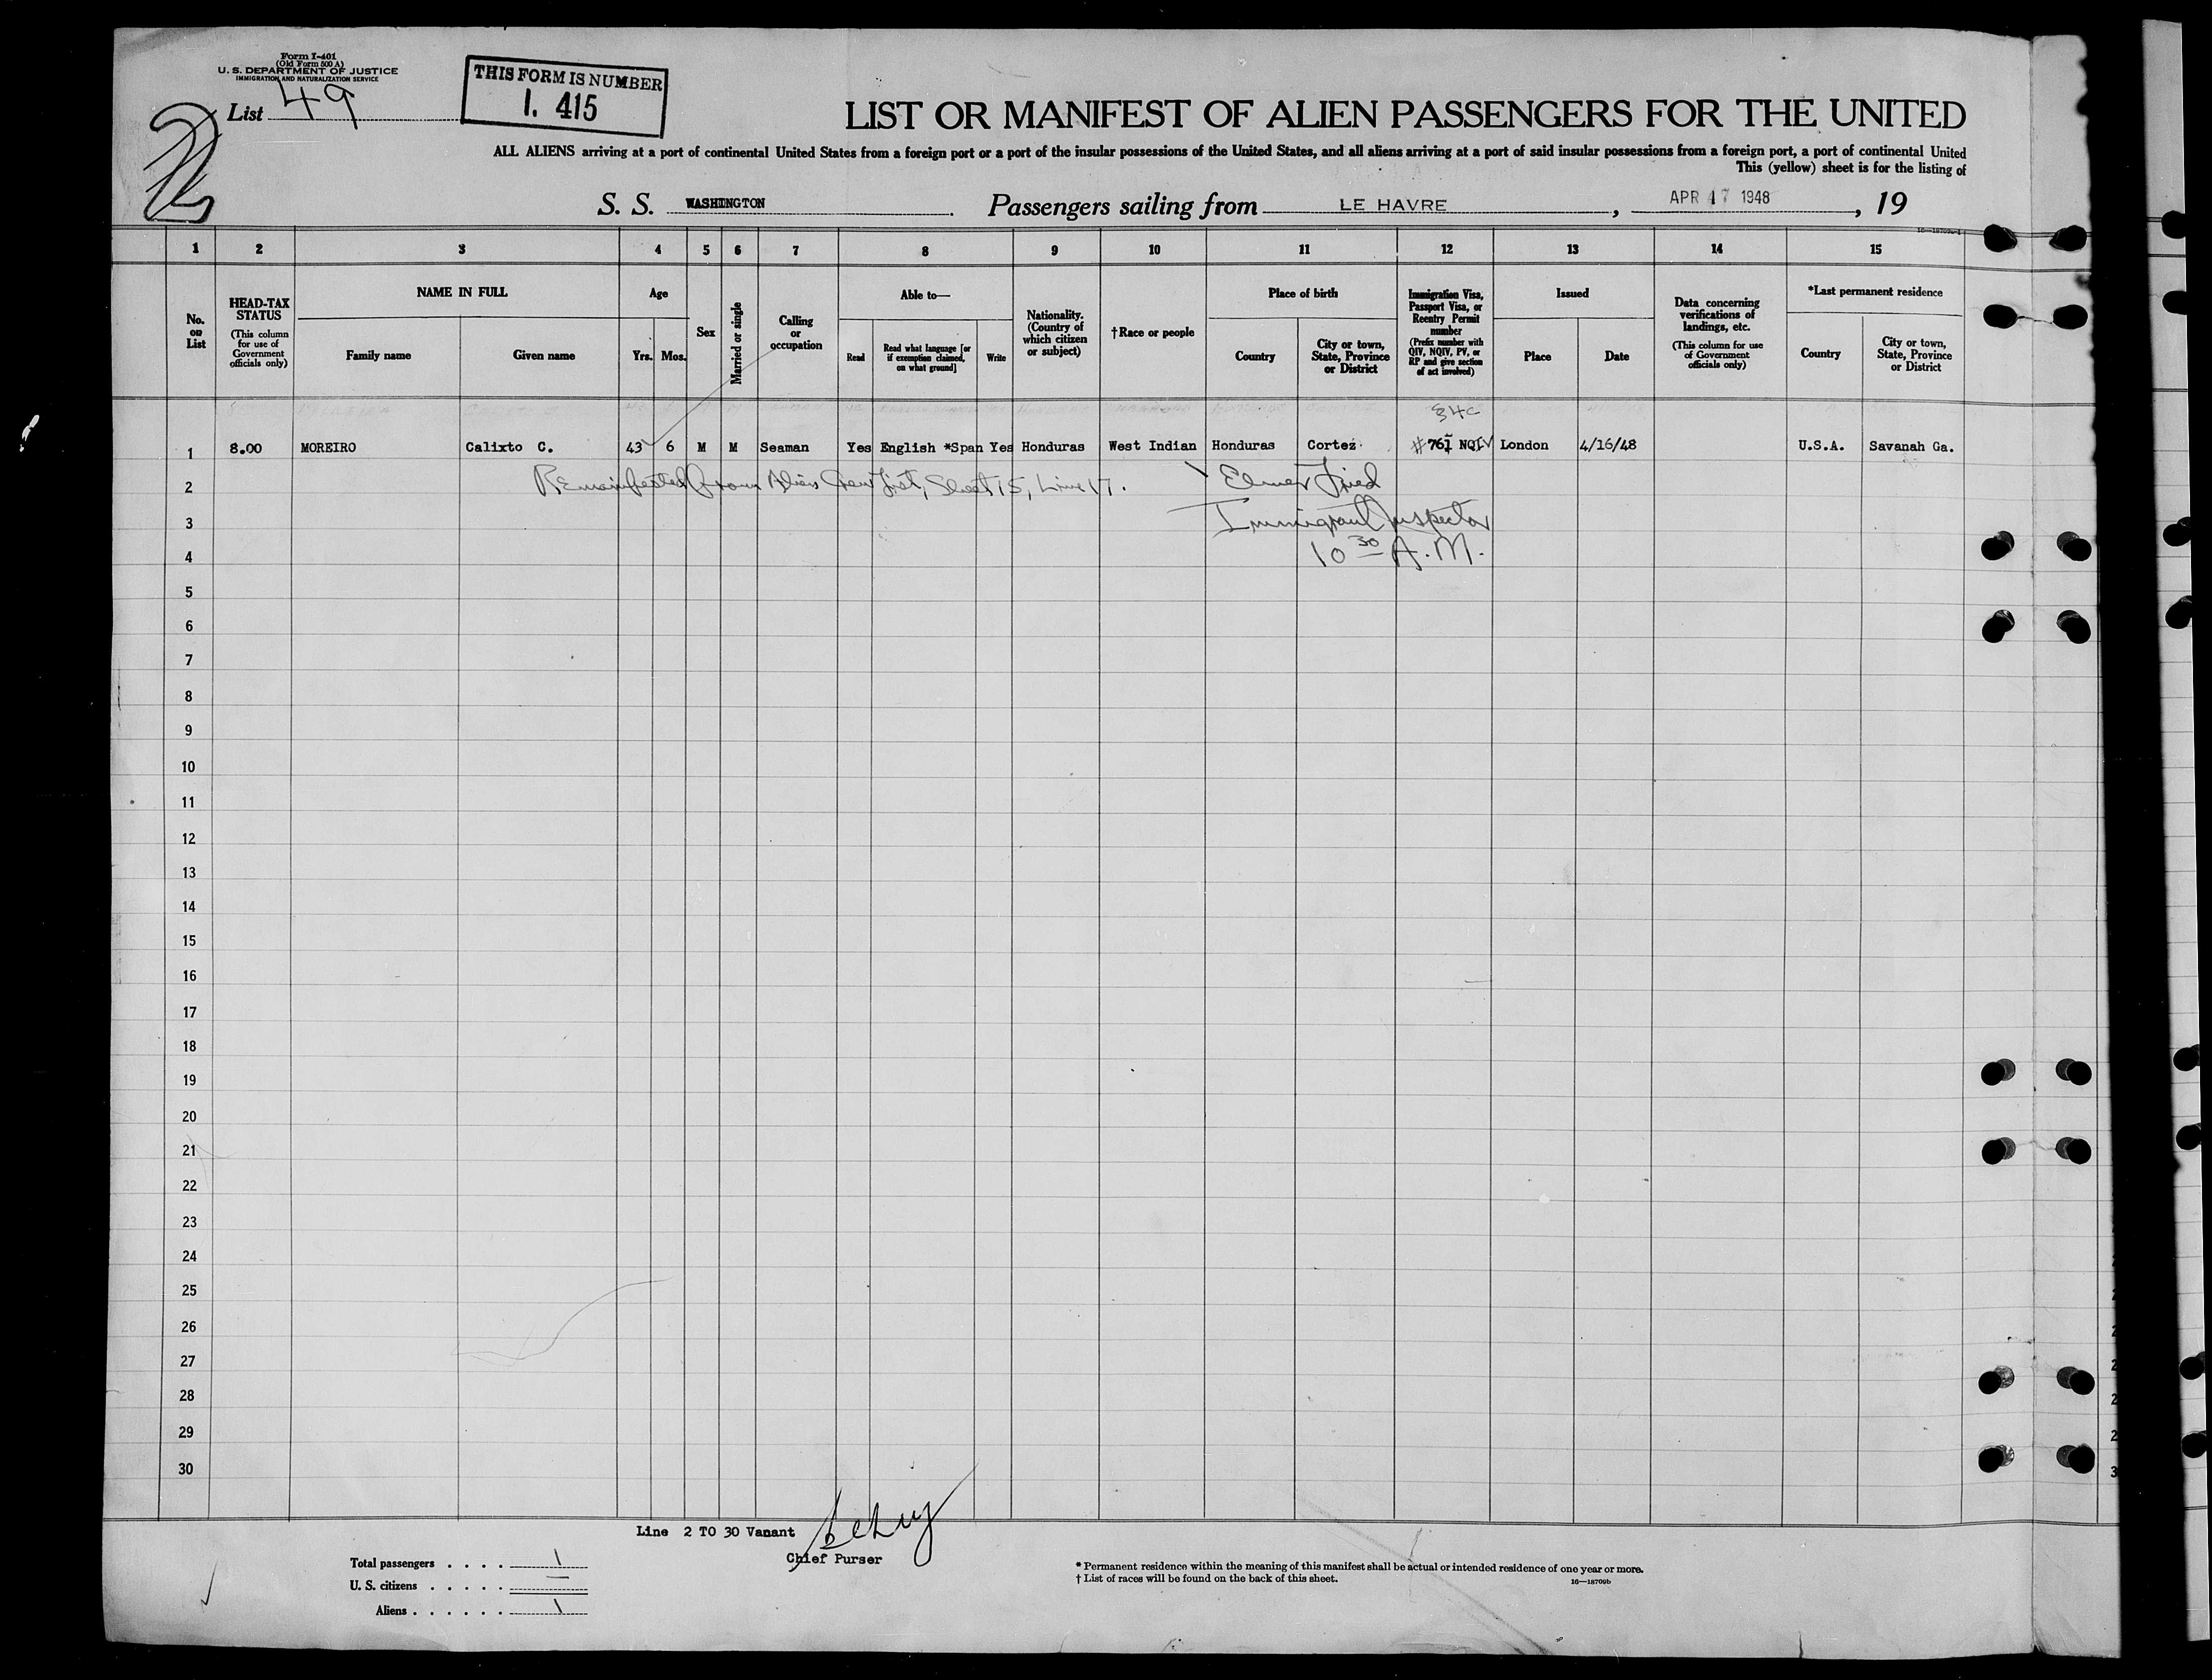 Form I-401
(Old Form 500 A)
U. S. DEPARTMENT OF JUSTICE
IMMIGRATION AND NATURALIZATION SERVICE
List 49
THIS FORM IS NUMBER
I. 415
LIST OR MANIFEST OF ALIEN PASSENGERS FOR THE UNITED
ALL ALIENS arriving at a port of continental United States from a foreign port or a port of the insular possessions of the United States, and all aliens arriving at a port of said insular possessions from a foreign port, a port of continental United
This (yellow) sheet is for the listing of
S. S. WASHINGTON. Passengers sailing from LE HAVRE, APR 17 1948, 19
1 2 3 4 5 6 7 8 9 10 11 12 13 14 15
No. on List
HEAD-TAX STATUS
(This column for use of Government officials only)
NAME IN FULL
Family name
Given name
Age
Yrs. Mos.
Sex
Married or single
Calling or occupation
Able to—
Read
Read what language [or if exemption claimed, on what ground]
Write
Nationality. (Country of which citizen or subject)
†Race or people
Place of birth
Country
City or town, State, Province or District
Immigration Visa, Passport Visa, or Reentry Permit number
(Prefix number with QIV, NQIV, PV, or RP and give section of act involved)
Issued
Place
Date
Data concerning verifications of landings, etc.
(This column for use of Government officials only)
*Last permanent residence
Country
City or town, State, Province or District
1 8.00 MOREIRO Calixto C. 43 6 M M Seaman Yes English *Span Yes Honduras West Indian Honduras Cortez #761 NQIV London 4/16/48 U.S.A. Savanah Ga.
2 Remanifested from Alien Crew List, Sheet 15, Line 17. Elmer Fried
3 Immigrant Inspector
4 10 30 A.M.
5
6
7
8
9
10
11
12
13
14
15
16
17
18
19
20
21
22
23
24
25
26
27
28
29
30
Line 2 TO 30 Vanant
Chief Purser
Total passengers . . . . 1
U. S. citizens . . . . . —
Aliens . . . . . . 1
* Permanent residence within the meaning of this manifest shall be actual or intended residence of one year or more.
† List of races will be found on the back of this sheet.
16—18709b